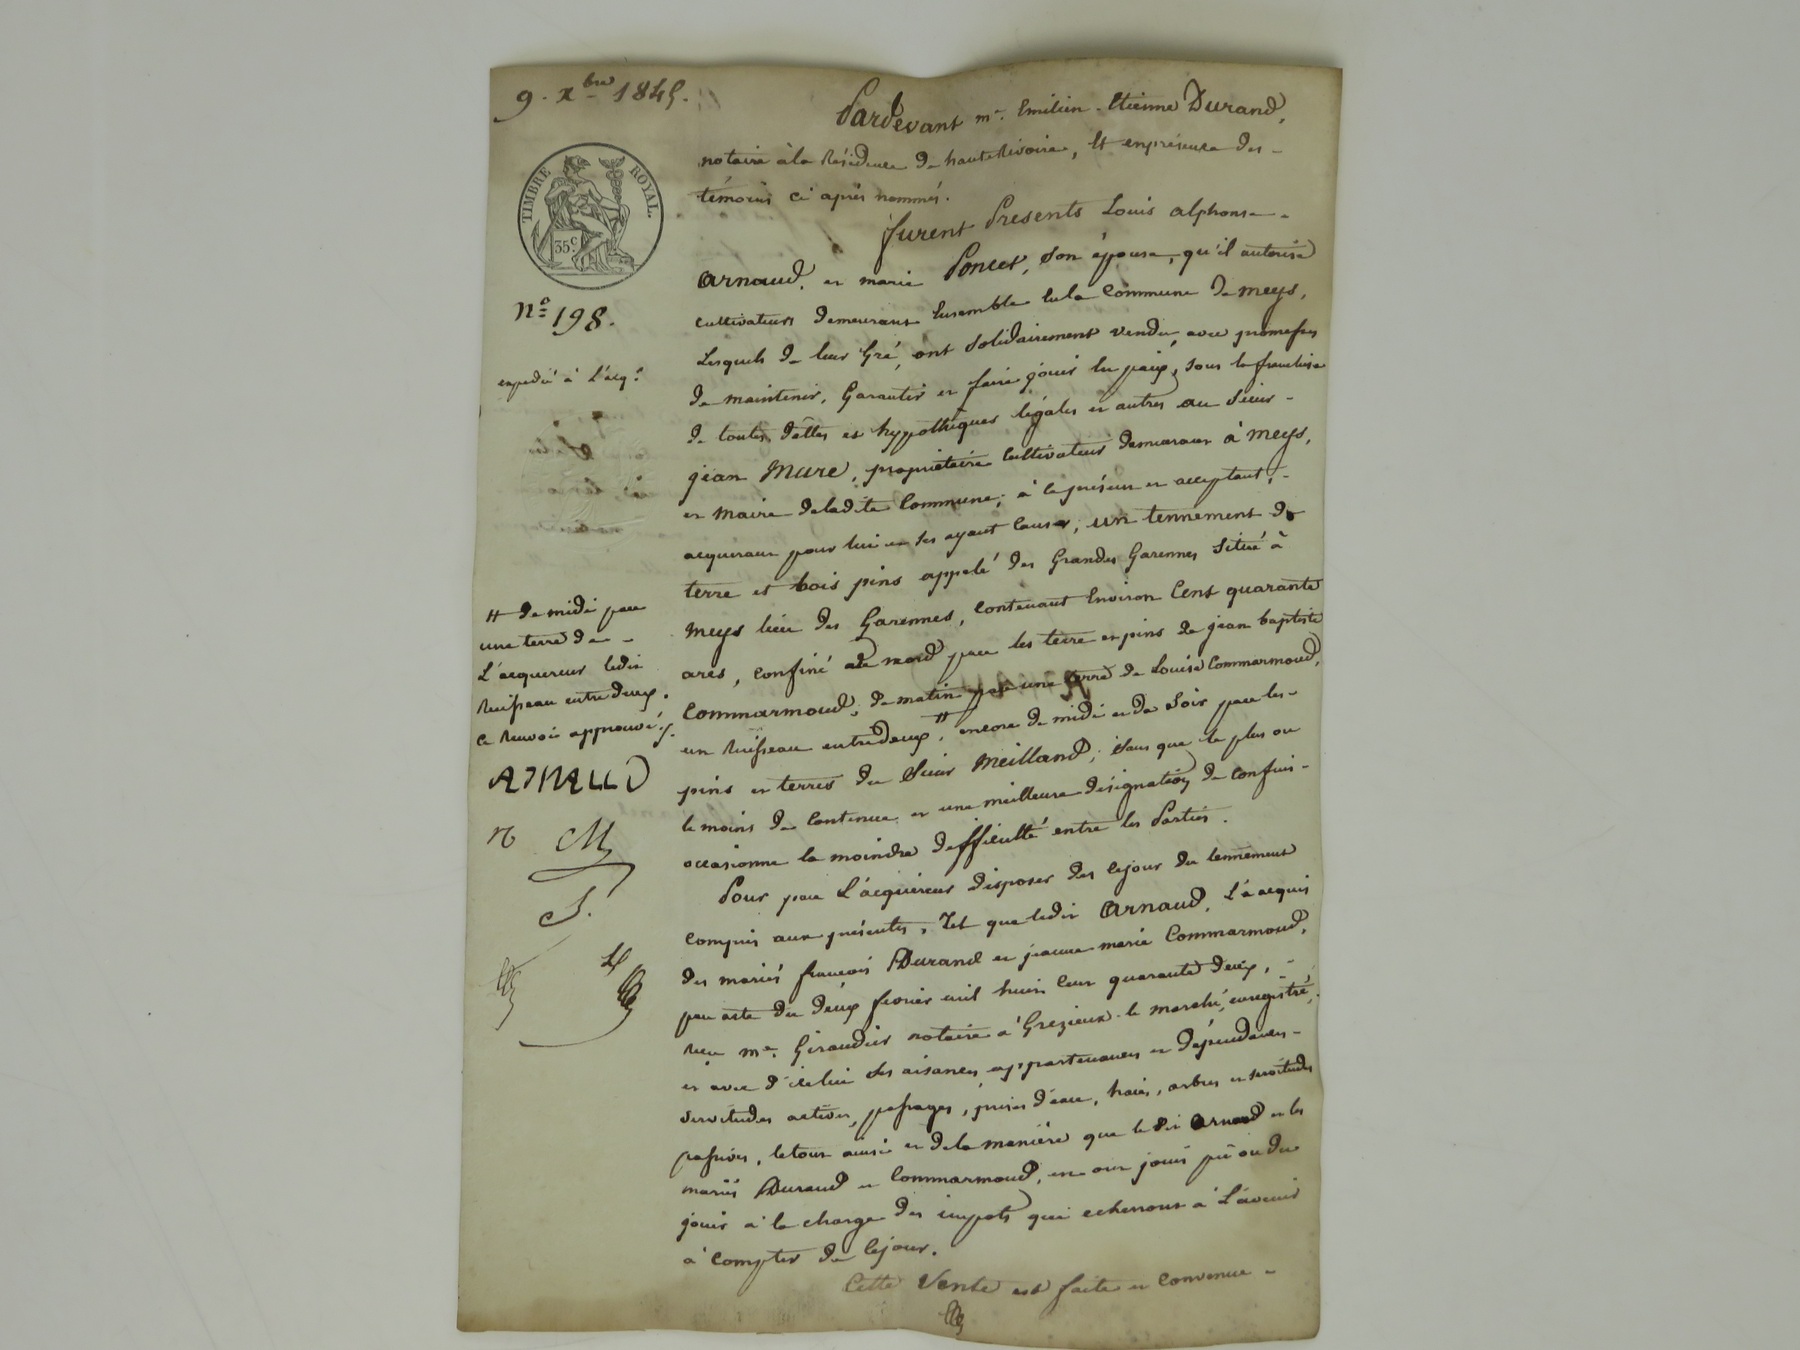 9. xbre 1845.
TIMBRE ROYAL.
35c
No 198.
expedié à L'acqr.
Pardevant me. Emilien Etienne Durand,
notaire à la Résidence de hauteRivoire, Et enprésence des
témoins ci après nommés.
furent Présents Louis alphonse
Arnaud, et marie Poncet, Son épouse, qu'il autorise
cultivateurs demeurant Ensemble En la Commune de meys,
Lesquels de leur Gré, ont Solidairement vendu, avec promesses
de maintenir, Garantir et faire jouir En paix, sous la franchise
de toutes dettes et hypothèques légales et autres au Sieur
jean Mure, propriétaire Cultivateur demeurant à meys,
et Maire deladite Commune, à ce présent et acceptant,
acquereur pour lui et ses ayant Cause, un tennement de
terre et bois pins appelé des Grandes Garennes Situé à
meys lieu des Garennes, Contenant Environ Cent quarante
ares, Confiné de nord par les terre et pins de jean baptiste
Commarmond, de matin par une terre de Louise Commarmond,
un Ruisseau entredeux, # encore de midi et de Soir par les
pins et terres du Sieur Meilland, Sans que le plus ou
le moins de Contenue et une meilleure désignation de confins
occasionne la moindre difficulté entre les Parties.
# de midi par
une terre de
L'acquereur ledit
Ruisseau entredeux.
ce Renvoi approuvé /.
ARNAUD
M
Pour par L'acquéreur disposer dès cejour du tennement
compris aux présentes, Tel que ledit Arnaud, L'a acquis
des mariés francois Durand et jeanne marie Commarmond,
par acte du deux fevrier mil huit Cent quarante deux,
Reçu me. Giraudier notaire à Grezieux le marché, enregistré,
et avec d'icelui ses aisances, appartenances et dépendances
servitudes actives, passages, prises d'eau, haies, arbres et servitudes
passives, letout ainsi et dela manière que le dit Arnaud et les
mariés Durand et Commarmond, en ont joui pû ou du
jouir à la charge des impots qui echerront à L'avenir
à compter de Cejour.
Cette Vente est faite et Convenue